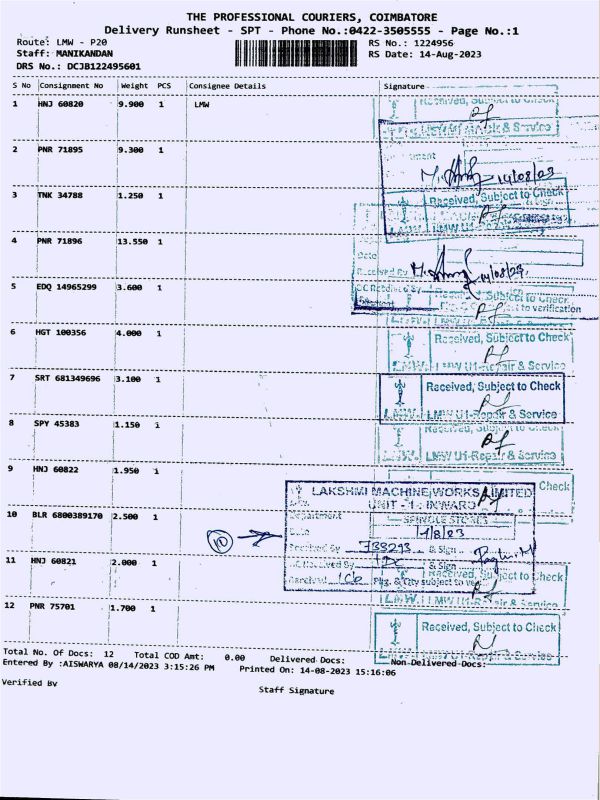 THE PROFESSIONAL COURIERS, COIMBATORE
Delivery Runsheet - SPT - Phone No.:0422-3505555 - Page No.:1
Route: LMW - P20 RS No.: 1224956
Staff: MANIKANDAN RS Date: 14-Aug-2023
DRS No.: DCJB122495601
S No Consignment No Weight PCS Consignee Details Signature
1 HNJ 60820 9.900 1 LMW
Received, Subject to Check
2 PNR 71895 9.300 1
14/08/23
3 TNK 34788 1.250 1
Received, Subject to Check
4 PNR 71896 13.550 1
Date
Received By
5 EDQ 14965299 3.600 1
to verification
6 HGT 100356 4.000 1
Received, Subject to Check
LMW U1-Repair & Service
7 SRT 681349696 3.100 1
Received, Subject to Check
LMW. LMW U1-Repair & Service
8 SPY 45383 1.150 1
Received, Subject to Check
LMW U1-Repair & Service
9 HNJ 60822 1.950 1
Check
LAKSHMI MACHINE WORKS LIMITED
UNIT - 1 - INWARD
10 BLR 6800389170 2.500 1
Department SPINDLE STORES
Date
10
Received By & Sign
11 HNJ 60821 2.000 1
Received By & Sign
Received Pkg. & Qty subject to
Received, Subject to Check
12 PNR 75701 1.700 1
Received, Subject to Check
LMW U1-Repair & Service
Total No. Of Docs: 12 Total COD Amt: 0.00 Delivered Docs: Non-Delivered Docs:
Entered By :AISWARYA 08/14/2023 3:15:26 PM Printed On: 14-08-2023 15:16:06
Verified By Staff Signature